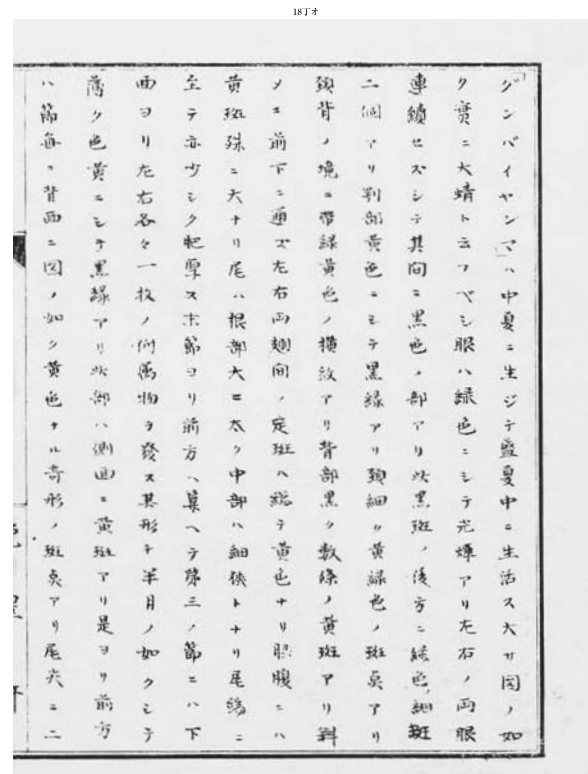 18丁オ
「グンバイヤンマ」ハ中夏ニ生ジテ盛夏中ニ生活ス大サ図ノ如
ク実ニ大蜻ト云フベシ眼ハ緑色ニシテ光輝アリ左右ノ両眼
連続セズシテ其間ニ黒色ノ部アリ此黒斑ノ後方ニ緑色ノ細斑
二個アリ判部黄色ニシテ黒縁アリ頚細ク黄緑色ノ斑点アリ
頚背ノ境ニ帯緑黄色ノ横紋アリ背部黒ク数条ノ黄斑アリ斜
メニ前下ニ通ズ左右両翅間ノ定斑ハ総テ黄色ナリ胸腹ニハ
黄斑殊ニ大ナリ尾ハ根部大ニ太ク中部ハ細狭トナリ尾端ニ
至テ亦少シク肥厚ス末節ヨリ前方ヘ算ヘテ第三ノ節ニハ下
面ヨリ左右各々一枚ノ附属物ヲ発ス其形チ半月ノ如クシテ
薄ク色黄ニシテ黒縁アリ此部ハ側面ニ黄斑アリ是ヨリ前方
ハ節毎ニ背面ニ図ノ如ク黄色ナル奇形ノ斑点アリ尾尖ニ二